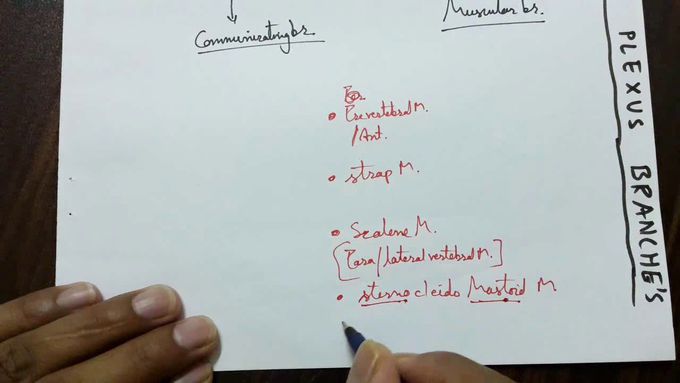 Communicating br.
Muscular br.
Prevertebral M.
/Ant.
strap M.
Scalene M.
[Para/lateral vertebral M.]
sterno cleido Mastoid M
PLEXUS BRANCHE'S